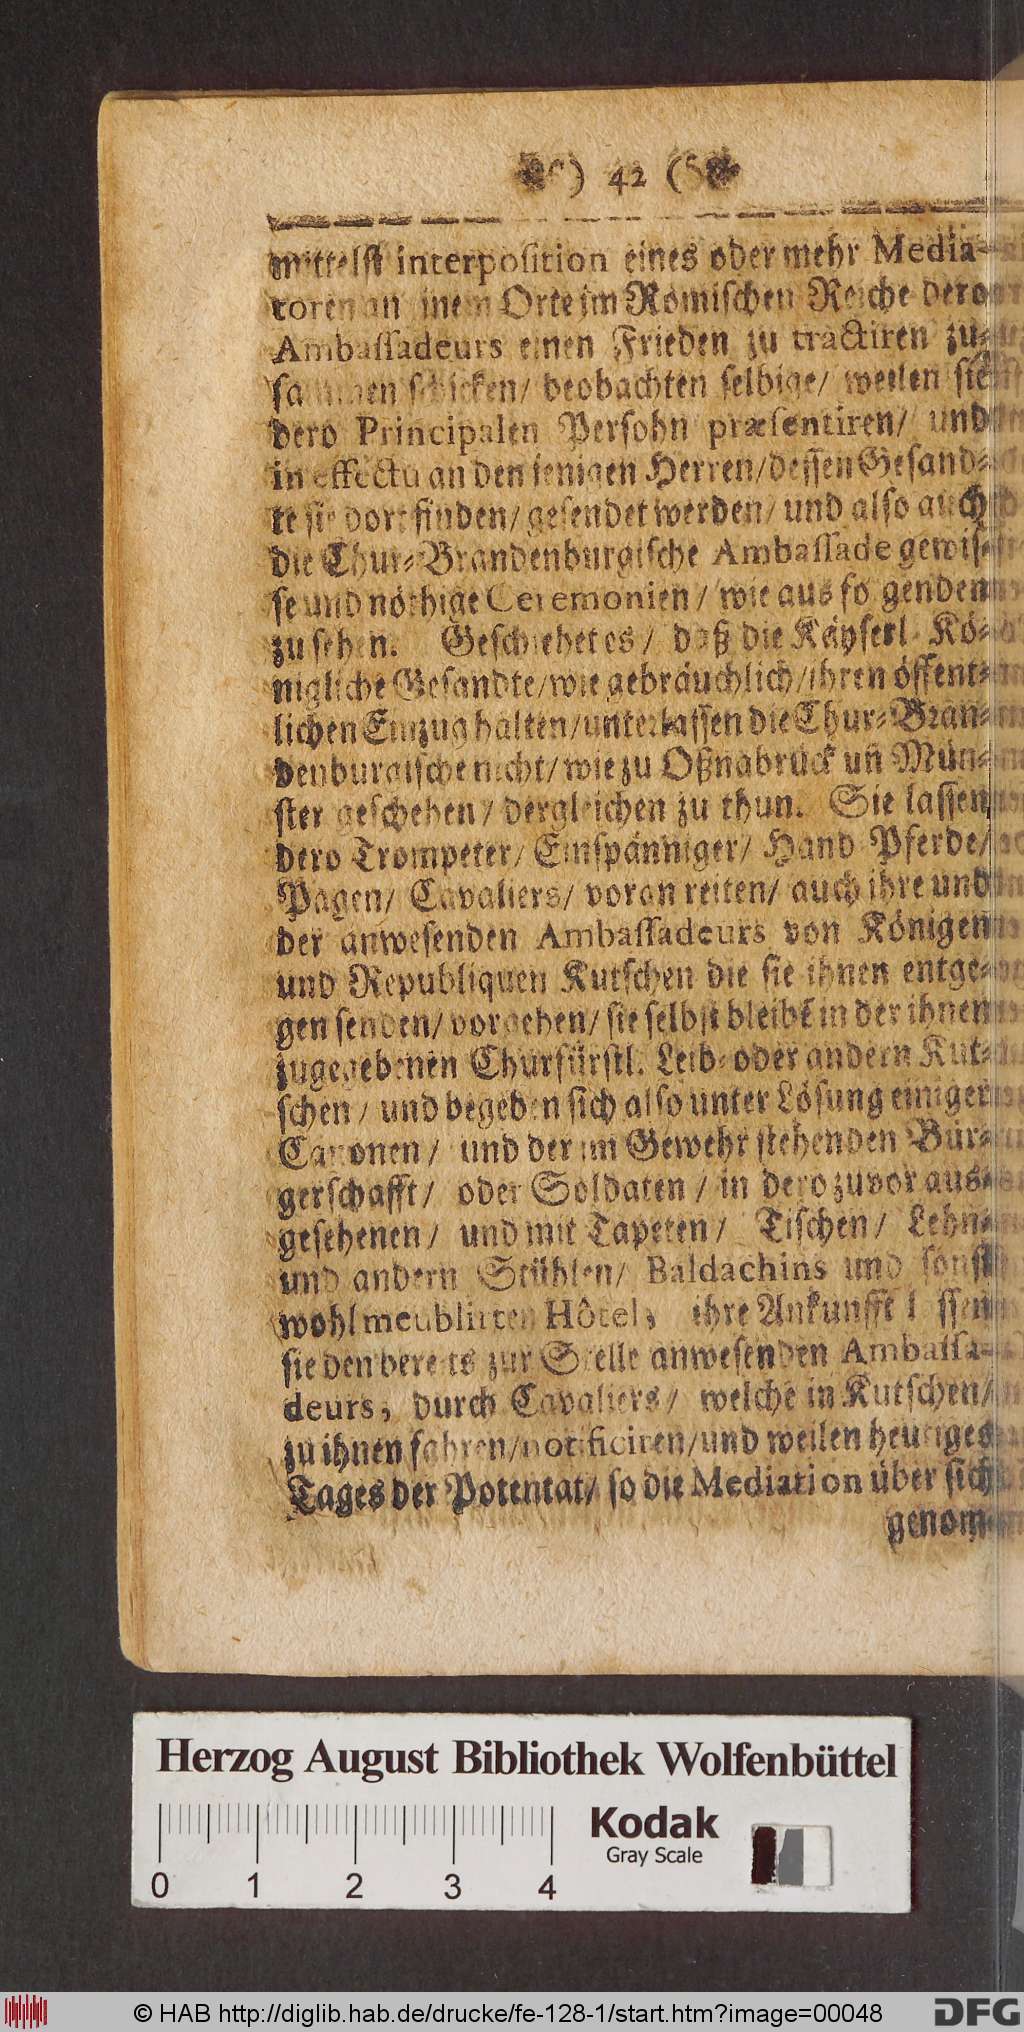 ) 42 (
mittelst interposition eines oder mehr Media-
toren an einem Orte im Römischen Reiche dero
Ambassadeurs einen Frieden zu tractiren zu-
sammen schicken/ beobachten selbige/ weilen sie
dero Principalen Persohn præsentiren/ und
in effectu an den jenigen Herren/dessen Gesand-
te sie dort finden/ gesendet werden/ und also auch
die Chur-Brandenburgische Ambassade gewis-
se und nöthige Ceremonien/ wie aus folgenden
zu sehen. Geschiehet es/ daß die Käyserl. Kö-
nigliche Gesandte/wie gebräuchlich/ihren öffent-
lichen Einzug halten/unterlassen die Chur-Bran-
denburgische nicht/ wie zu Oßnabrück uñ Mün-
ster geschehen/ dergleichen zu thun. Sie lassen
dero Trompeter/ Einspänniger/ Hand-Pferde/
Pagen/ Cavaliers/ voran reiten/ auch ihre und
der anwesenden Ambassadeurs von Königen
und Republiquen Kutschen die sie ihnen entge-
gen senden/ vorgehen/ sie selbst bleibẽ in der ihnen
zugegebenen Churfürstl. Leib- oder andern Kut-
schen/ und begeben sich also unter Lösung einiger
Canonen/ und der im Gewehr stehenden Bür-
gerschafft/ oder Soldaten/ in dero zuvor aus-
gesehenen/ und mit Tapeten/ Tischen/ Lehn-
und andern Stühlen/ Baldachins und sonst
wohl meublirten Hôtel, ihre Ankunfft lassen
sie den bereits zur Stelle anwesenden Ambassa-
deurs, durch Cavaliers/ welche in Kutschen/
zu ihnen fahren/notificiren/und weilen heutiges
Tages der Potentat/ so die Mediation über sich
genom-
Herzog August Bibliothek Wolfenbüttel
Kodak
Gray Scale
0 1 2 3 4
© HAB http://diglib.hab.de/drucke/fe-128-1/start.htm?image=00048
DFG